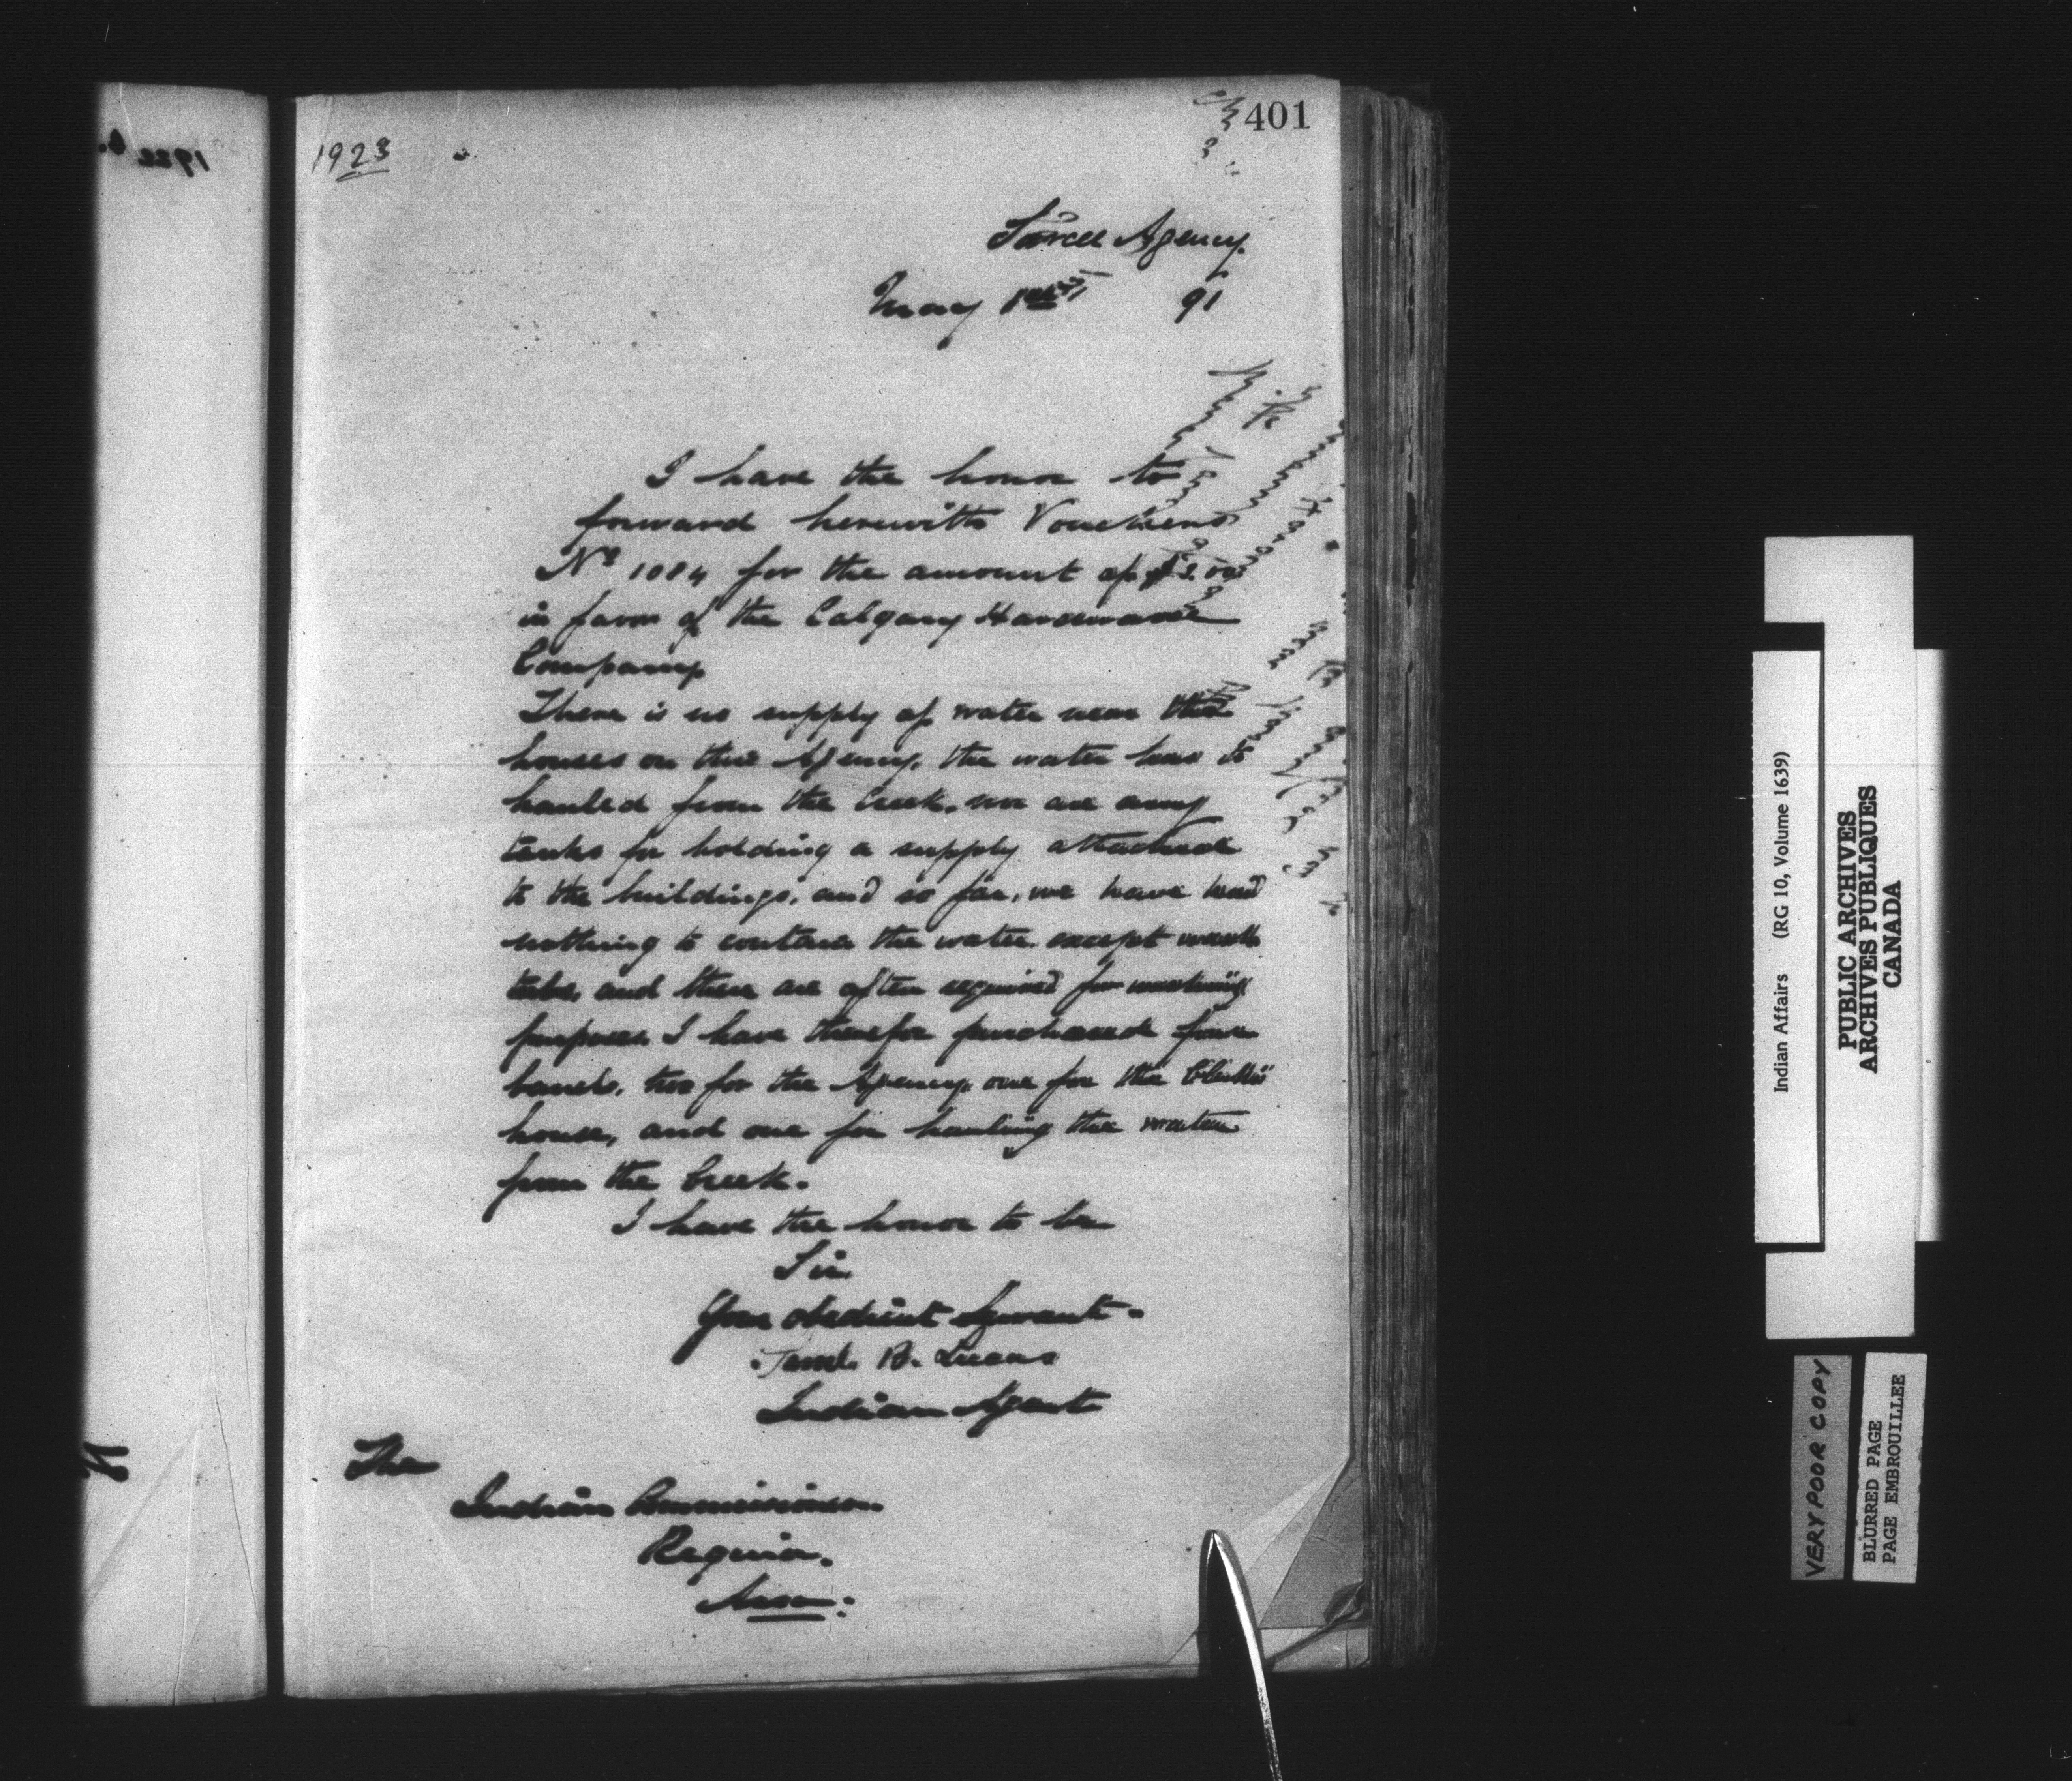 401
1923
Sarcee Agency.
May 1st 91
I have the honor to
forward herewith Vouchers
No 1084 for the amount of
in favor of the Calgary Hardware
Company
There is no supply of water near the
houses on this Agency, the water has to
hauled from the Creek. nor are any
tanks for holding a supply attached
to the buildings, and so far, we have had
nothing to contain the water except wash
tubs, and these are often required for washing
purposes I have therefor purchased four
barrels, two for the Agency, one for the Clerk's
house, and one for hauling the water
from the Creek.
I have the honor to be
Sir
Your obedient Servant.
B. Lucas
Indian Agent
The
Indian Commissioner
Regina.
Assa:
Indian Affairs (RG 10, Volume 1639)
PUBLIC ARCHIVES
ARCHIVES PUBLIQUES
CANADA
VERY POOR COPY
BLURRED PAGE
PAGE EMBROUILLEE